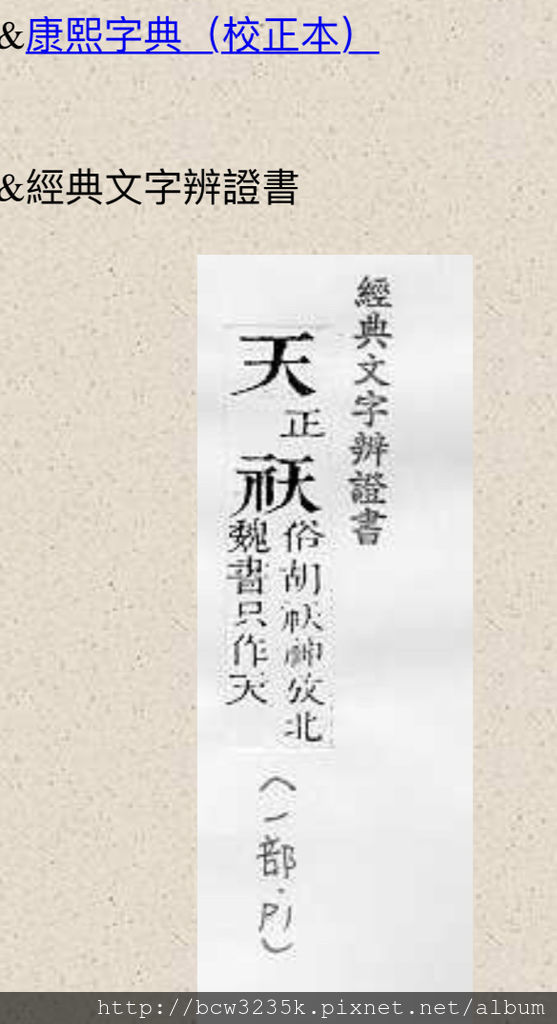 &康熙字典（校正本）
&經典文字辨證書
經典文字辨證書
天正祆俗胡祆神攷北
魏書只作天
（一部．p1）
http://bcw3235k.pixnet.net/album